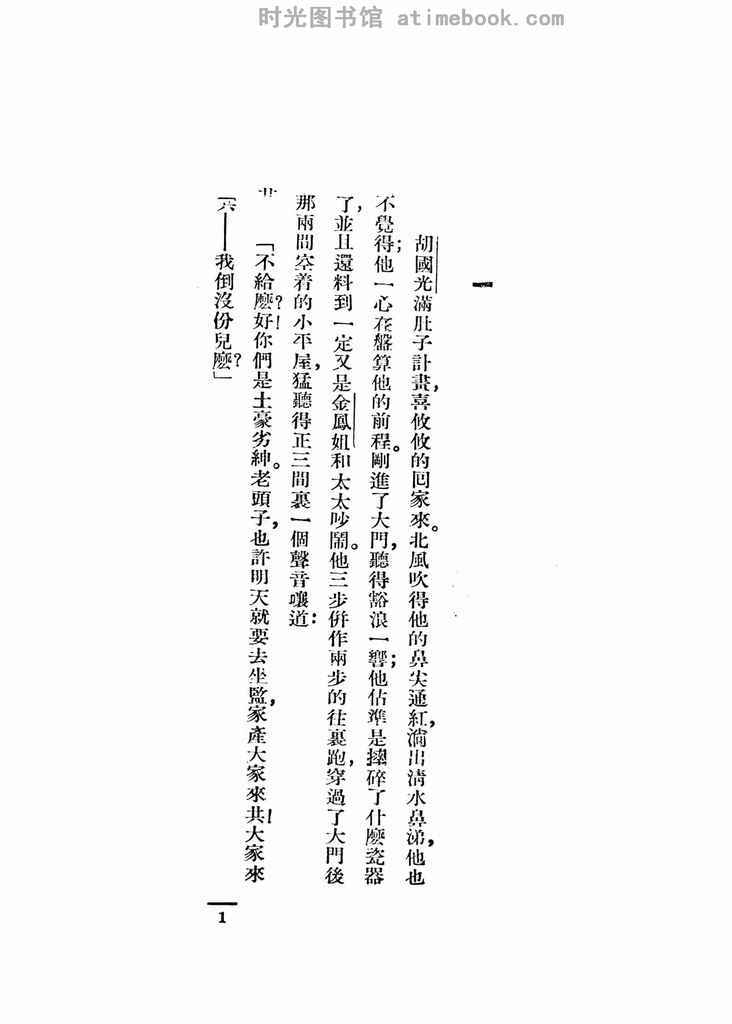 时光图书馆 atimebook.com
一
胡國光滿肚子計畫，喜攸攸的回家來。北風吹得他的鼻尖通紅，淌出清水鼻涕，他也
不覺得；他一心在盤算他的前程。剛進了大門，聽得豁浪一響；他估準是摔碎了什麽瓷器
了，並且還料到一定又是金鳳姐和太太吵鬧。他三步倂作兩步的往裏跑，穿過了大門後
那兩間空着的小平屋，猛聽得正三間裏一個聲音嚷道：
「不給麽？好！你們是土豪劣紳。老頭子，也許明天就要去坐監，家產大家來共！大家來
共——我倒沒份兒麽？」
1